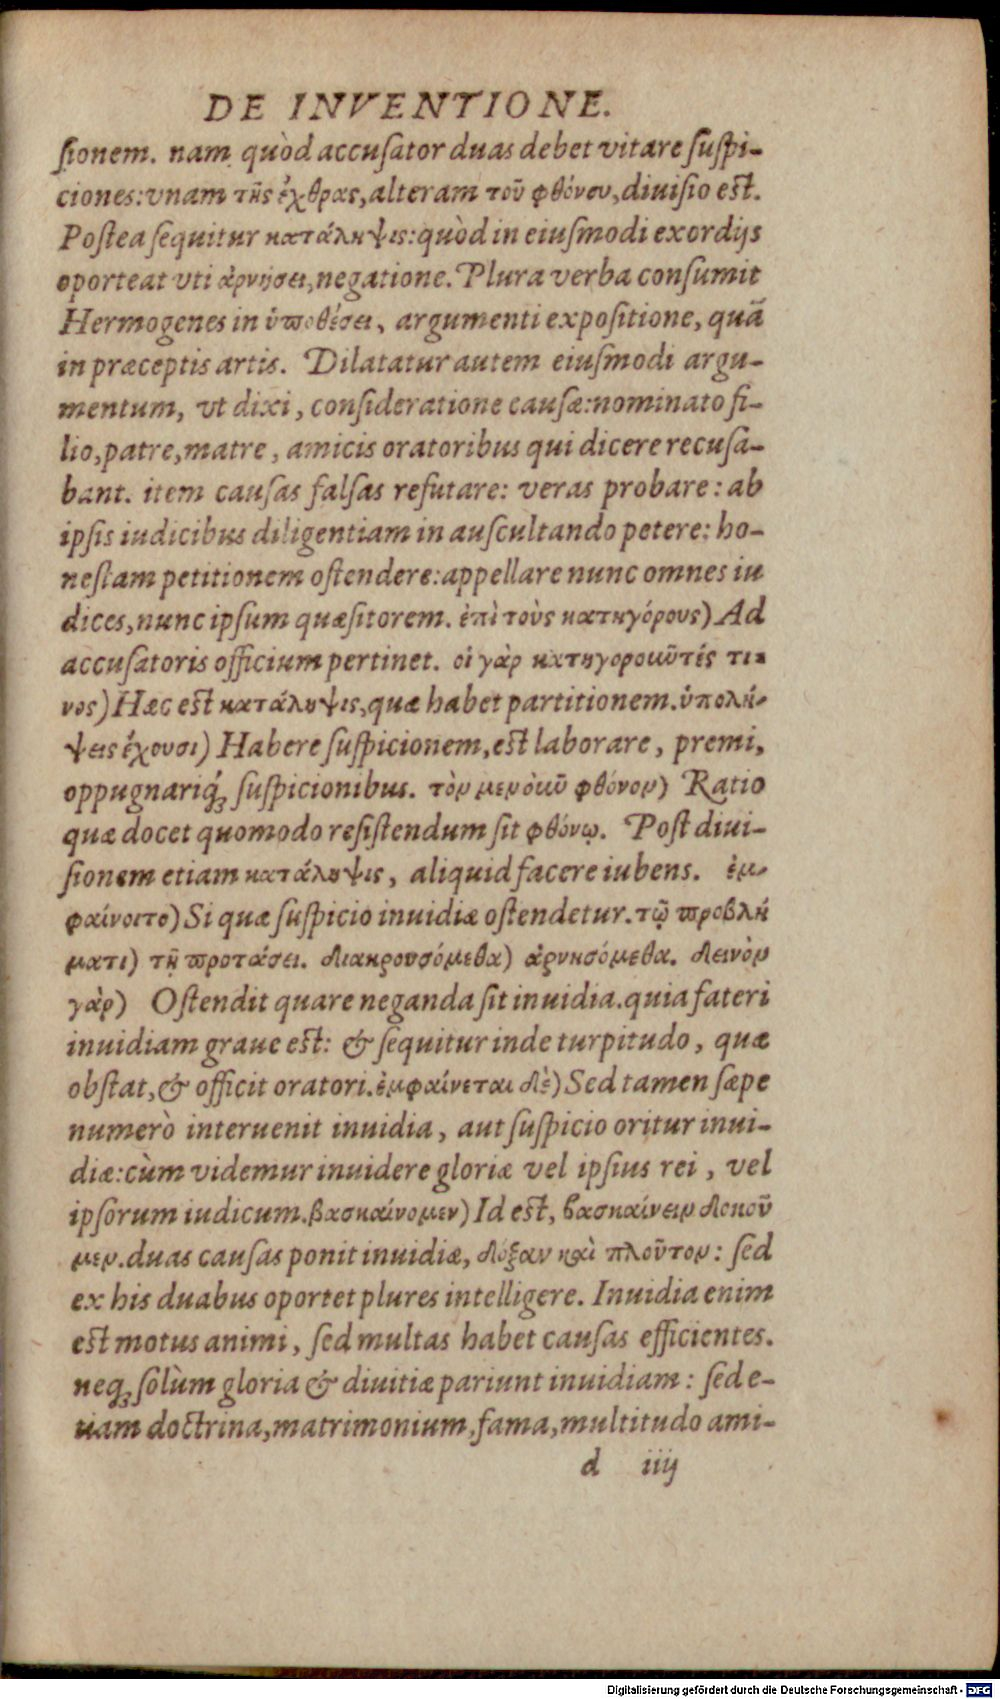 DE INVENTIONE.
sionem. nam quòd accusator duas debet vitare suspi-
ciones: vnam τῆς ἔχθρας, alteram τοῦ φθόνου, diuisio est.
Postea sequitur κατάληψις: quòd in eiusmodi exordijs
oporteat vti ἀρνήσει, negatione. Plura verba consumit
Hermogenes in ὑποθέσει, argumenti expositione, quã
in præceptis artis. Dilatatur autem eiusmodi argu-
mentum, vt dixi, consideratione causæ: nominato fi-
lio, patre, matre, amicis oratoribus qui dicere recusa-
bant. item causas falsas refutare: veras probare: ab
ipsis iudicibus diligentiam in auscultando petere: ho-
nestam petitionem ostendere: appellare nunc omnes iu
dices, nunc ipsum quæsitorem. ἐπὶ τοὺς κατηγόρους) Ad
accusatoris officium pertinet. οἱ γὰρ κατηγοροῦντές τι-
νος) Hæc est κατάληψις, quæ habet partitionem. ὑπολή-
ψεις ἔχουσι) Habere suspicionem, est laborare, premi,
oppugnariq́; suspicionibus. τὸν μὲν οὖν φθόνον) Ratio
quæ docet quomodo resistendum sit φθόνῳ. Post diui-
sionem etiam κατάληψις, aliquid facere iubens. ἐμ-
φαίνοιτο) Si quæ suspicio inuidiæ ostendetur. τῷ προβλή
ματι) τῇ προτάσει. διακρουσόμεθα) ἀρνησόμεθα. δεινὸν
γὰρ) Ostendit quare neganda sit inuidia. quia fateri
inuidiam graue est: & sequitur inde turpitudo, quæ
obstat, & officit oratori. ἐμφαίνεται δὲ) Sed tamen sæpe
numerò interuenit inuidia, aut suspicio oritur inui-
diæ: cùm videmur inuidere gloriæ vel ipsius rei, vel
ipsorum iudicum. βασκαίνομεν) Id est, βασκαίνειν δοκοῦ
μεν. duas causas ponit inuidiæ, δόξαν καὶ πλοῦτον: sed
ex his duabus oportet plures intelligere. Inuidia enim
est motus animi, sed multas habet causas efficientes.
neq; solùm gloria & diuitiæ pariunt inuidiam: sed e-
tiam doctrina, matrimonium, fama, multitudo ami-
d iiij
Digitalisierung gefördert durch die Deutsche Forschungsgemeinschaft - DFG